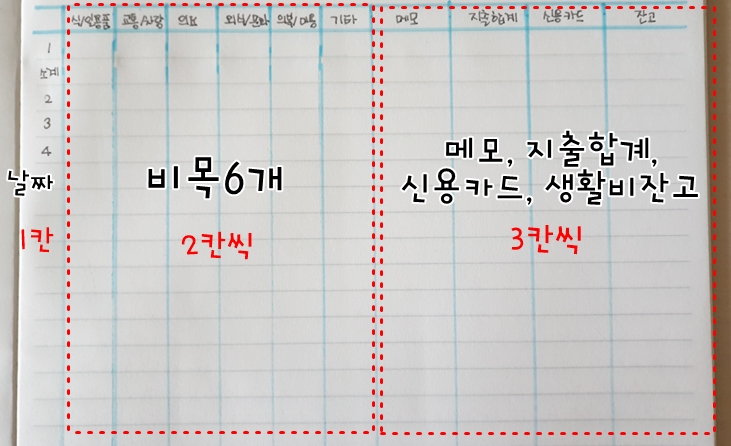 식/생활용품 교통/차량 의료 외식/문화 의복/미용 기타 메모 지출합계 신용카드 잔고
1
소계
2
3
4
날짜
1칸
비목6개
2칸씩
메모, 지출합계,
신용카드, 생활비잔고
3칸씩